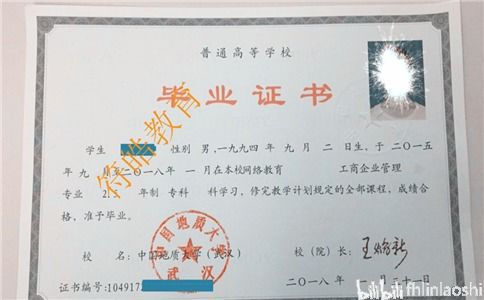 普通高等学校
毕业证书
学生 性别 男,一九九四年 九月 二日生,于二〇一五
年 九月至二〇一八年 一月在本校网络教育 工商企业管理
专业 2. 年制 专科 科学习,修完教学计划规定的全部课程,成绩
合格,准予毕业。
校 名:中国地质大学(武汉) 校(院)长:
证书编号:10491
二〇一八年 二十一日
符皓教育
中国地质大学
武汉
bilibili fhlinlaoshi